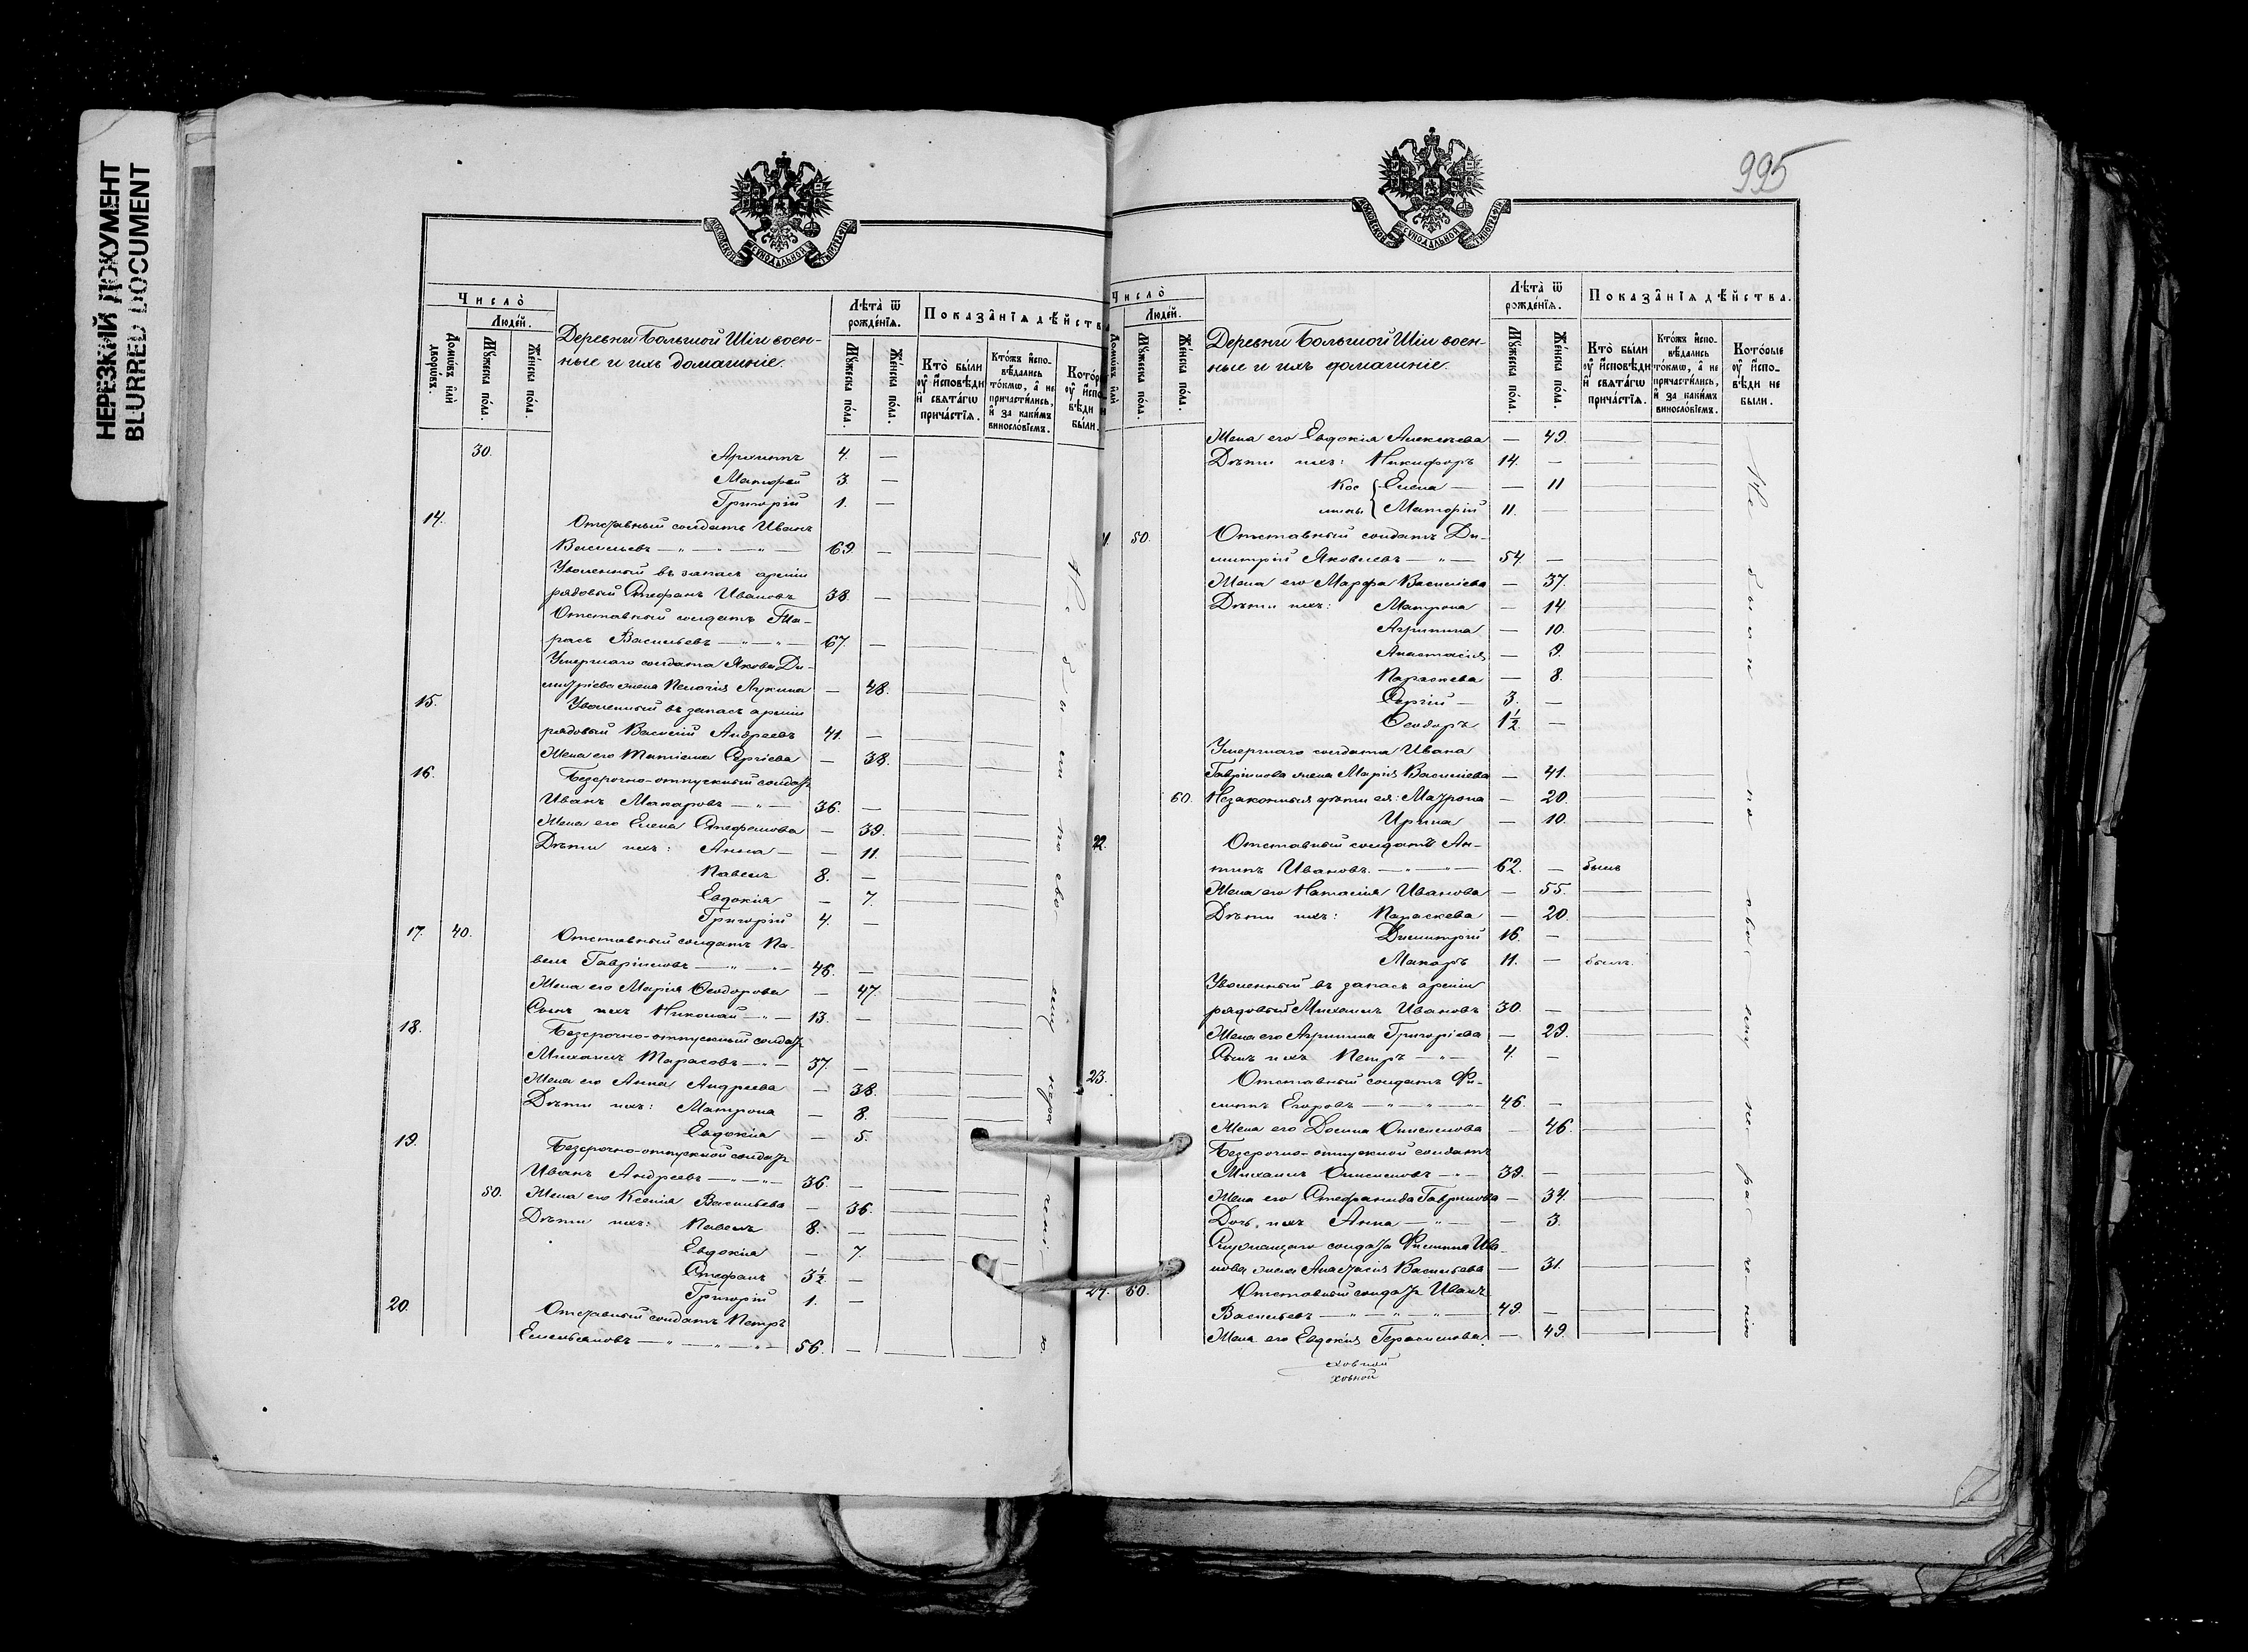 НЕРЕЗКИЙ ДОКУМЕНТ
BLURRED DOCUMENT
Число̀
Людей.
Домѡвъ или дворѡвъ.
Мꙋжеска пола.
Женска пола.
Деревни Большой Шіи воен-
ные и ихъ домашніе.
Лѣта̀ ѿ рожденїѧ.
Мꙋжеска пола.
Женска пола.
Показанїѧ дѣйств
Кто̀ были
оу̓ исповѣди
и свѧтагѡ
причастїѧ.
Ктожъ испо-
вѣдались
токмѡ, а не
причастились,
и за какимъ
винословїемъ.
Котор
оу̓ испо
вѣди
были.
30. Архиппъ 4. —
Матѳей 3. —
Григорій 1. —
14. Отставный солдатъ Иванъ
Васильевъ — 69. —
Уволенный въ запасъ арміи
рядовый Стефанъ Ивановъ 38. —
Отставный солдатъ Та-
расъ Васильевъ — 67. —
Умершаго солдата Якова Ди-
митріева жена Пелагія Лукина — 48.
15. Уволенный въ запасъ арміи
рядовый Василій Андреевъ 41. —
Жена его Татіана Сергіева — 38.
16. Безсрочно-отпускный солдатъ
Иванъ Макаровъ — 36. —
Жена его Елена Стефанова — 39.
Дѣти ихъ: Анна — — 11.
Павелъ 8. —
Евдокія — 7.
Григорій 4. —
17. 40. Отставный солдатъ Па-
велъ Гавріиловъ — 46. —
Жена его Марія Ѳеодорова — 47.
Сынъ ихъ Николай — 13. —
18. Безсрочно-отпускный солдатъ
Михаилъ Тарасовъ — 37. —
Жена его Анна Андреева — 38.
Дѣти ихъ: Матрона — 8.
Евдокія — 5.
19. Безсрочно-отпускной солдатъ
Иванъ Андреевъ — 36. —
50. Жена его Ксенія Васильева — 36.
Дѣти ихъ: Павелъ 8. —
Евдокія — 7.
Стефанъ 3½. —
Григорій 1. —
20. Отставный солдатъ Петръ
Емельяновъ — 56. —
995
Число̀
Людей.
Домѡвъ или
Мꙋжеска пола.
Женска пола.
Деревни Большой Шіи воен-
ные и ихъ домашніе.
Лѣта̀ ѿ рожденїѧ.
Мꙋжеска пола.
Женска пола.
Показанїѧ дѣйства.
Кто̀ были
оу̓ исповѣди
и свѧтагѡ
причастїѧ.
Ктожъ испо-
вѣдались
токмѡ, а не
причастились,
и за какимъ
винословїемъ.
Которые
оу̓ испо-
вѣди не
были.
Жена его Евдокія Алексѣева — 49.
Дѣти ихъ: Никифоръ 14. —
Елена — — 11
Матѳей 11. —
50. Отставный солдатъ Ди-
митрій Яковлевъ — 54. —
Жена его Марѳа Василіева — 37.
Дѣти ихъ: Матрона — 14
Агрипина — 10.
Анастасія — 9.
Параскева — 8.
Сергій — 3. —
Ѳеодоръ 1½. —
Умершаго солдата Ивана
Гавріилова жена Марія Василіева — 41.
60. Незаконныя дѣти ея: Матрона — 20.
Ирина — 10.
22. Отставный солдатъ Ан-
типъ Ивановъ. — 62. — былъ
Жена его Наталія Иванова — 55.
Дѣти ихъ: Параскева — 20.
Димитрій 16. —
Макаръ 11. — былъ.
Уволенный въ запасъ арміи
рядовый Михаилъ Ивановъ 30. —
Жена его Агрипина Григоріева — 29.
Сынъ ихъ Петръ — 4. —
23. Отставный солдатъ Фи-
липпъ Егоровъ — 46. —
Жена его Домна Онисимова — 46.
Безсрочно-отпускной солдатъ
Михаилъ Онисимовъ — 39. —
Жена его Стефанида Гаврилова — 34.
Дочь ихъ Анна — — 3.
Служащаго солдата Филиппа Ива-
нова жена Анастасія Васильева — 31.
24. 60. Отставный солдатъ Иванъ
Васильевъ — 49. —
Жена его Евдокія Герасимова — 49.
Не были по